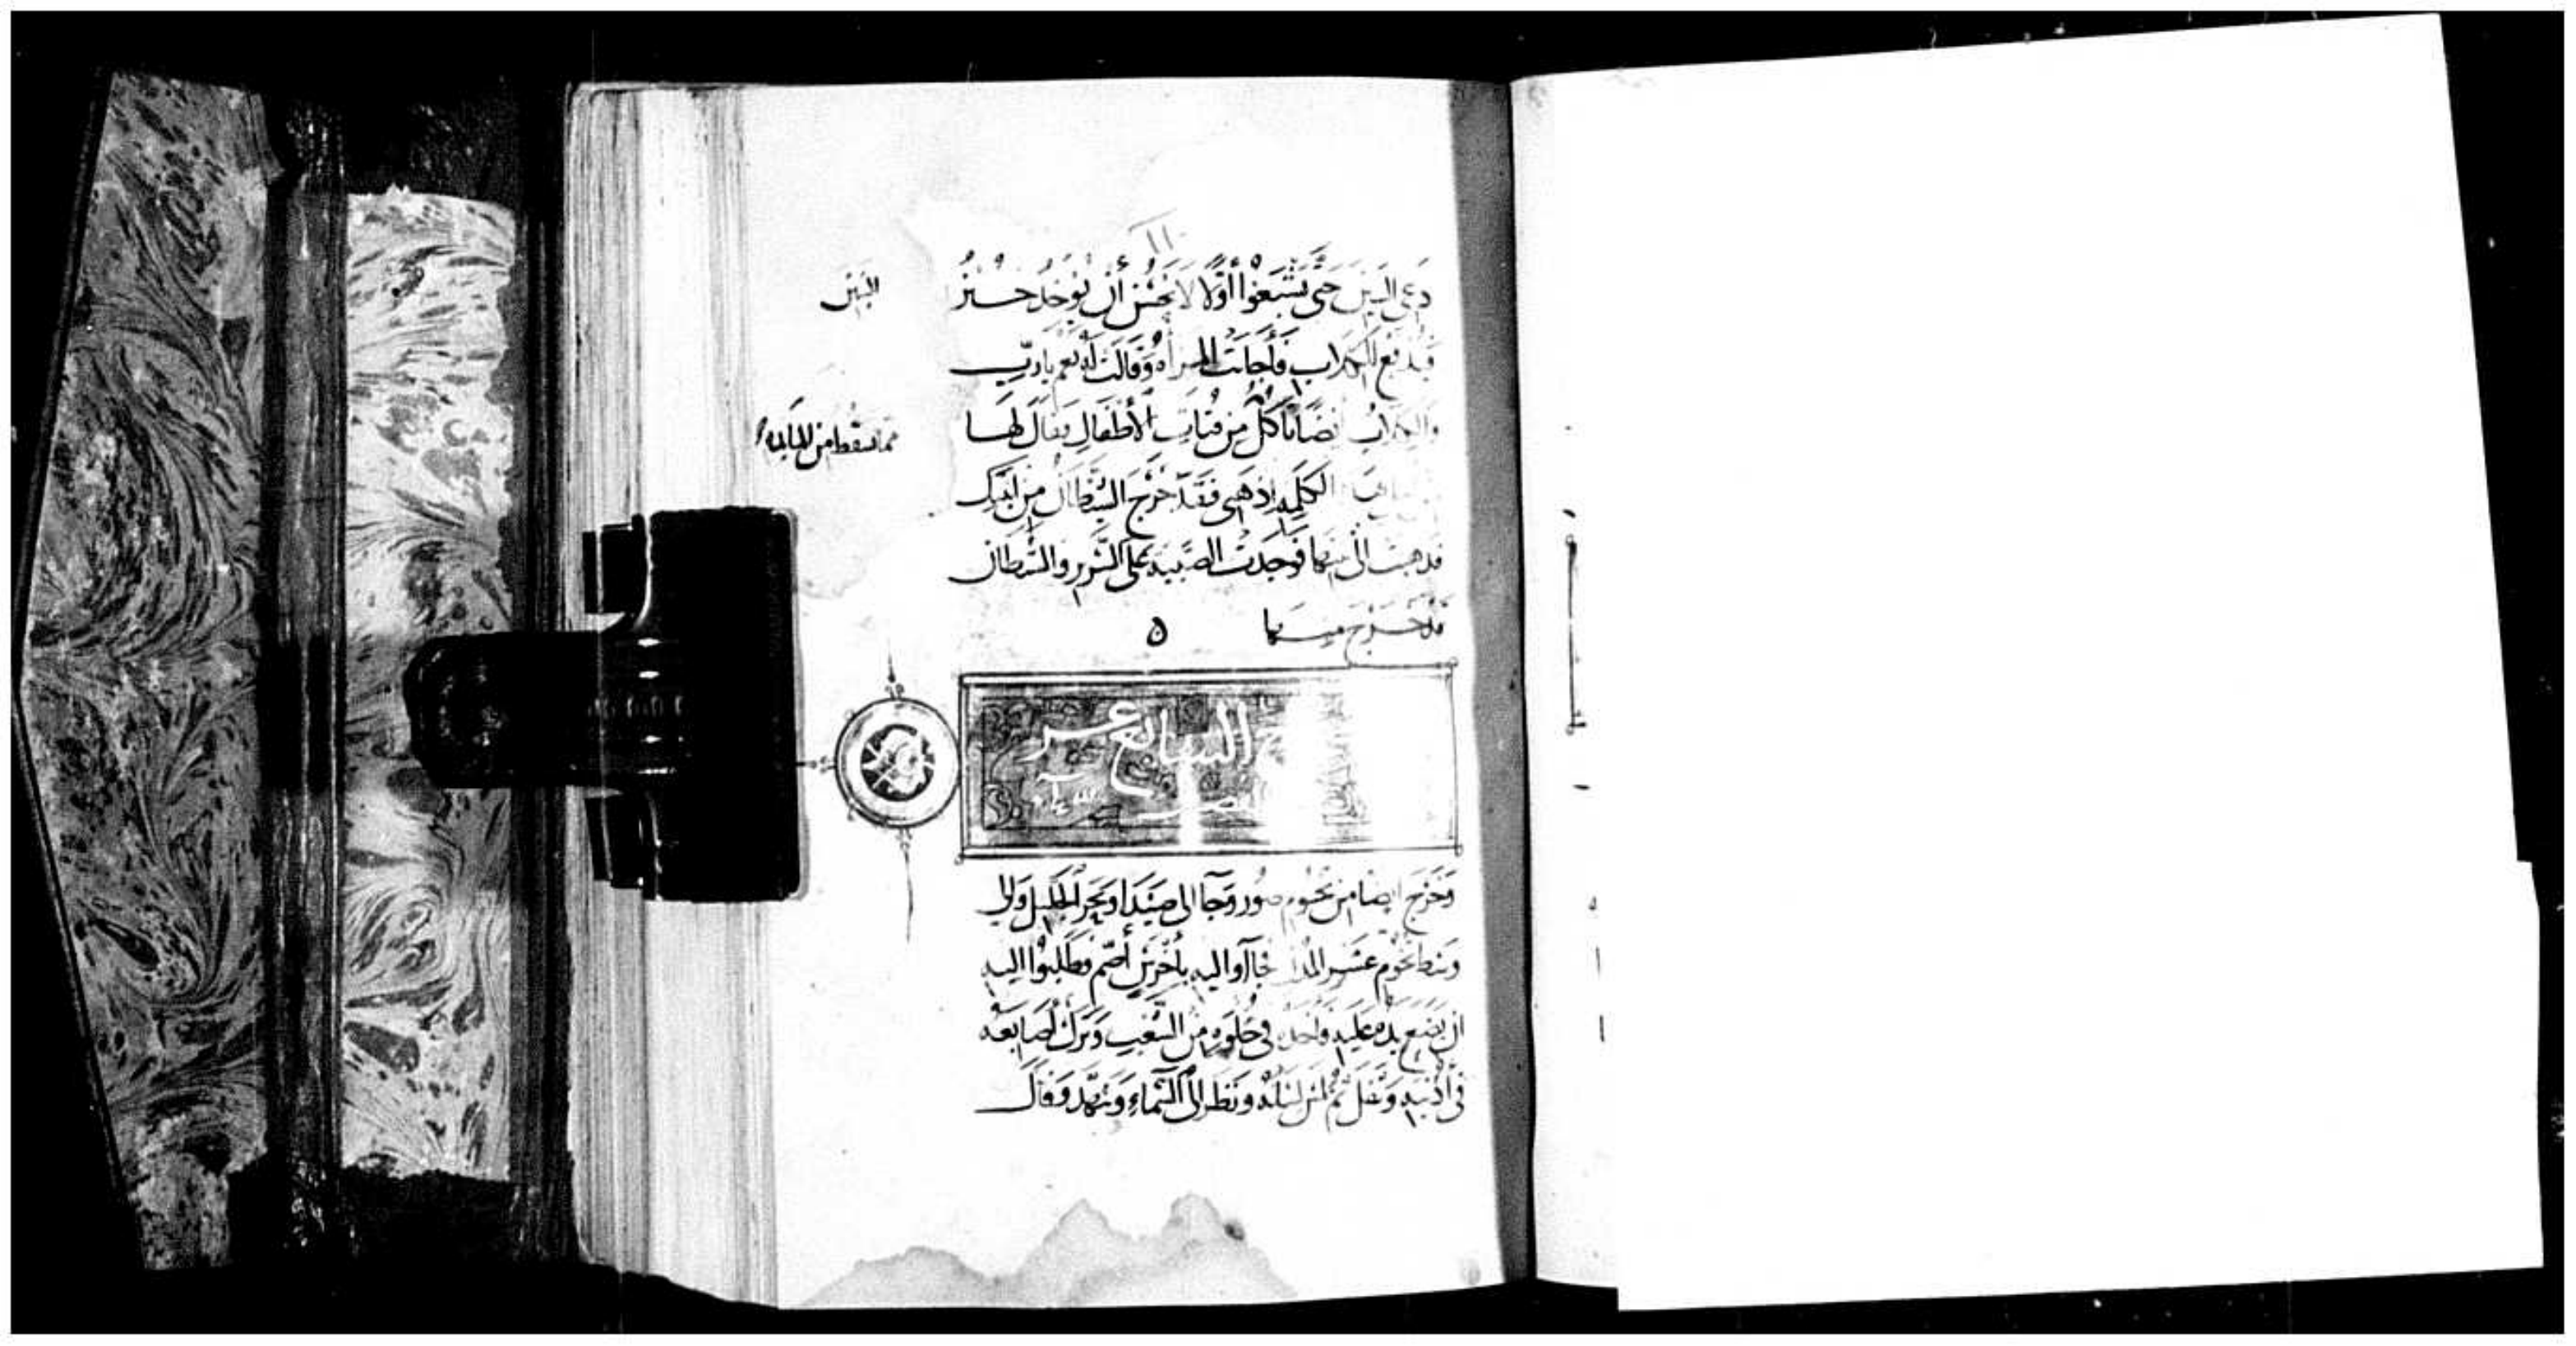 دَعى البنين حَتّى يَشْبَعُوْا أَوَّلًا لَا يَحْسُن أَنْ يُوْخَد خُبْزُ
البنين
فَيُدفع للكلاب فَأَجَابَت المرأه وَقَالَتْ لَهُ نعم يا ربّ
والكلابُ ايضًا تَاكُلُ مِن فُتَاتِ الأَطفَالِ فقال لها
مما يسقط من المايده
الكلمه اذهبى فَقَدْ خَرَجَ الشَّيْطَانُ مِن ابنتك
فذهبت الى بيتها فوجَدَتْ الصَّبيّه عَلى السَّرير والشيطان
قد خرج منها
السابع عشر
وَخَرَج ايضا من تخوم صُور وَجَآ الى صَيْدَا وبَحر الجليل والى
وسط تخوم عَشر المدن فجآاوا اليه بأخرس أصمّ وطَلَبُوْا اليه
ان يَضع يده عَليه واخده فى خلوه من الشعب وَتَرك أصَابعَه
فى أُذنيه وتفل ثم لمس لسَانه ونَظَر الى السَّماءِ وَتنهّد وَقالَ